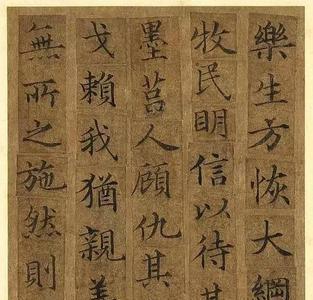 樂生方恢大綱
牧民明信以待其
墨莒人顧仇其
戈賴我猶親善
無所之施然則